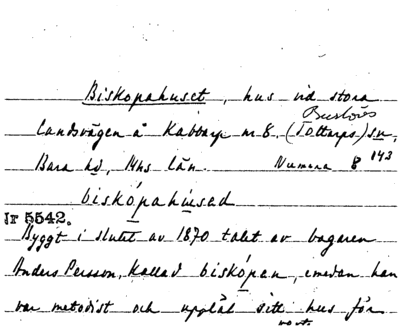 Biskopahuset, hus vid stora
Burlövs
landsvägen å Kabbarp nr 8. (Tottarps) sn,
Bara hd, Mhs län. Numera 8 143
biskópahúsed
Nr 5542.
Byggt i slutet av 1870 talet av bagaren
Anders Persson, kallad biskópen, emedan han
var metodist och upplät sitt hus för